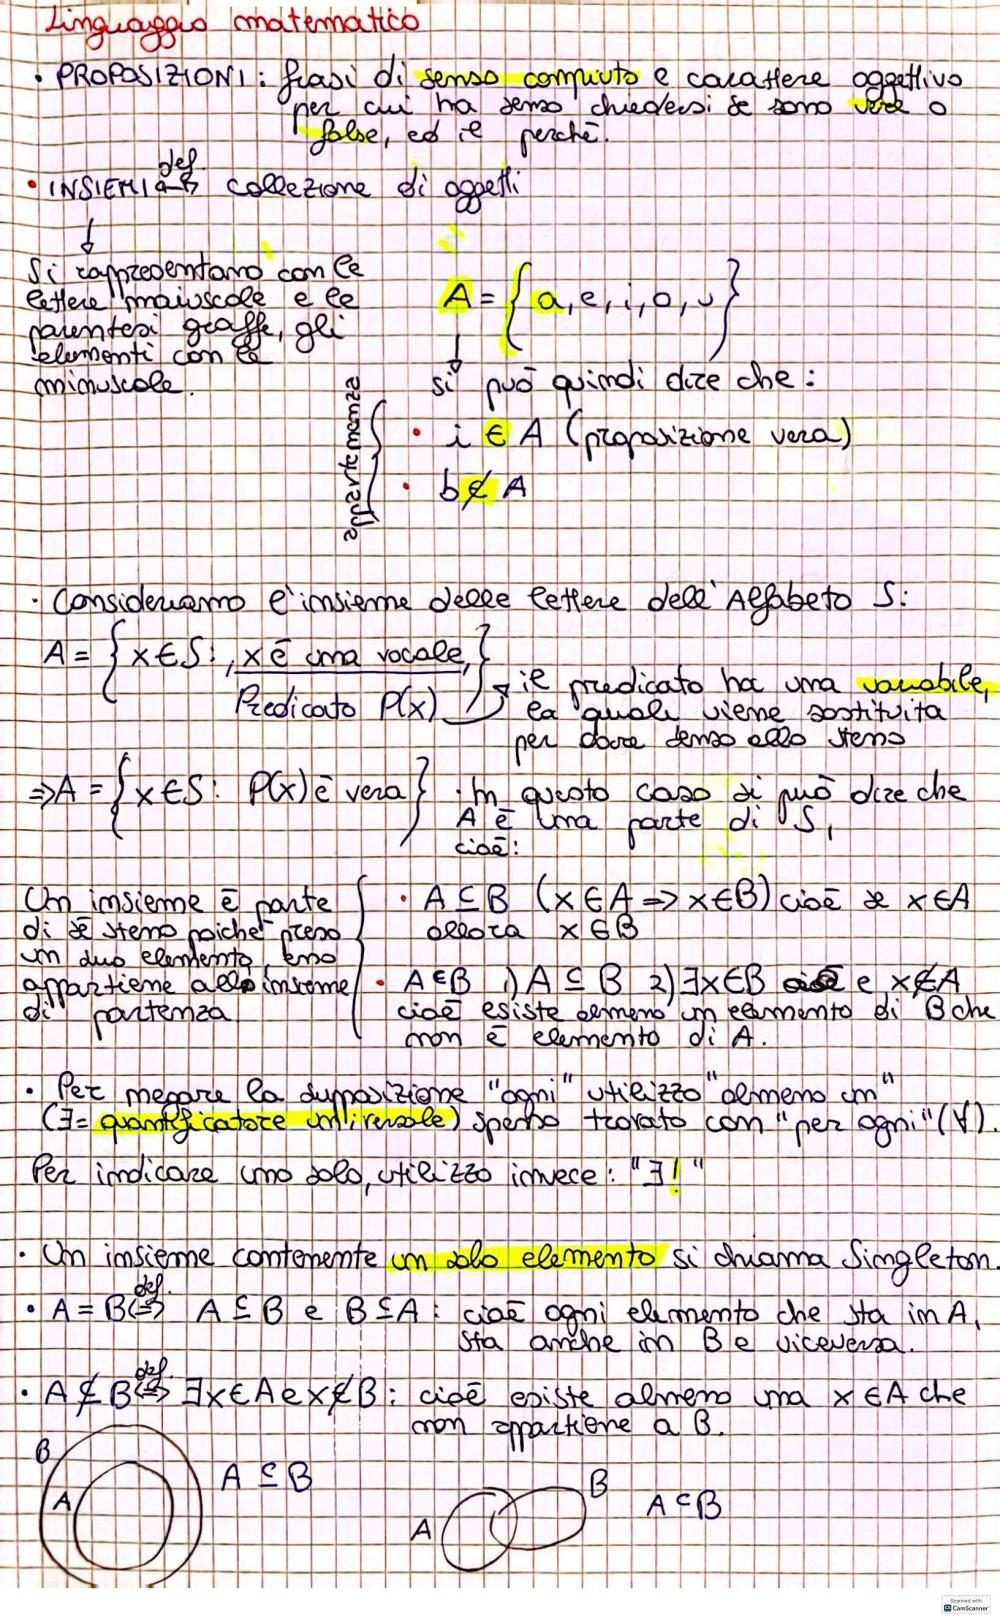 Linguaggio matematico
• PROPOSIZIONI: frasi di senso compiuto e carattere oggettivo
per cui ha senso chiedersi se sono vere o
false, ed il perché.
• INSIEMI def. ⇔ collezione di oggetti
↓
Si rappresentano con le
lettere maiuscole e le
parentesi graffe, gli
elementi con le
minuscole.
A = {a, e, i, o, u}
↓
si può quindi dire che:
appartenenza
• i ∈ A (proposizione vera)
• b ∉ A
• Consideriamo l'insieme delle lettere dell'Alfabeto S:
A = {x ∈ S: x è una vocale}
Predicato P(x) → il predicato ha una variabile,
la quale viene sostituita
per dare senso allo stesso
⇒ A = {x ∈ S: P(x) è vera}
• In questo caso si può dire che
A è una parte di S,
cioè:
Un insieme è parte
di sé stesso poiché preso
un suo elemento, esso
appartiene allo insieme
di partenza
• A ⊆ B (x ∈ A => x ∈ B) cioè se x ∈ A
allora x ∈ B
• A ⊂ B 1) A ⊆ B 2) ∃x ∈ B e x ∉ A
cioè esiste almeno un elemento di B che
non è elemento di A.
• Per negare la supposizione "ogni" utilizzo "almeno un"
(∃= quantificatore universale) spesso trovato con "per ogni" (∀).
Per indicare uno solo, utilizzo invece: "∃!"
• Un insieme contenente un solo elemento si chiama Singleton.
• A = B def. ⇔ A ⊆ B e B ⊆ A: cioè ogni elemento che sta in A,
sta anche in B e viceversa.
• A ⊄ B def. ⇔ ∃x ∈ A e x ∉ B: cioè esiste almeno una x ∈ A che
non appartiene a B.
B
A
A ⊆ B
A
B
A ⊂ B
Scanned with
CamScanner